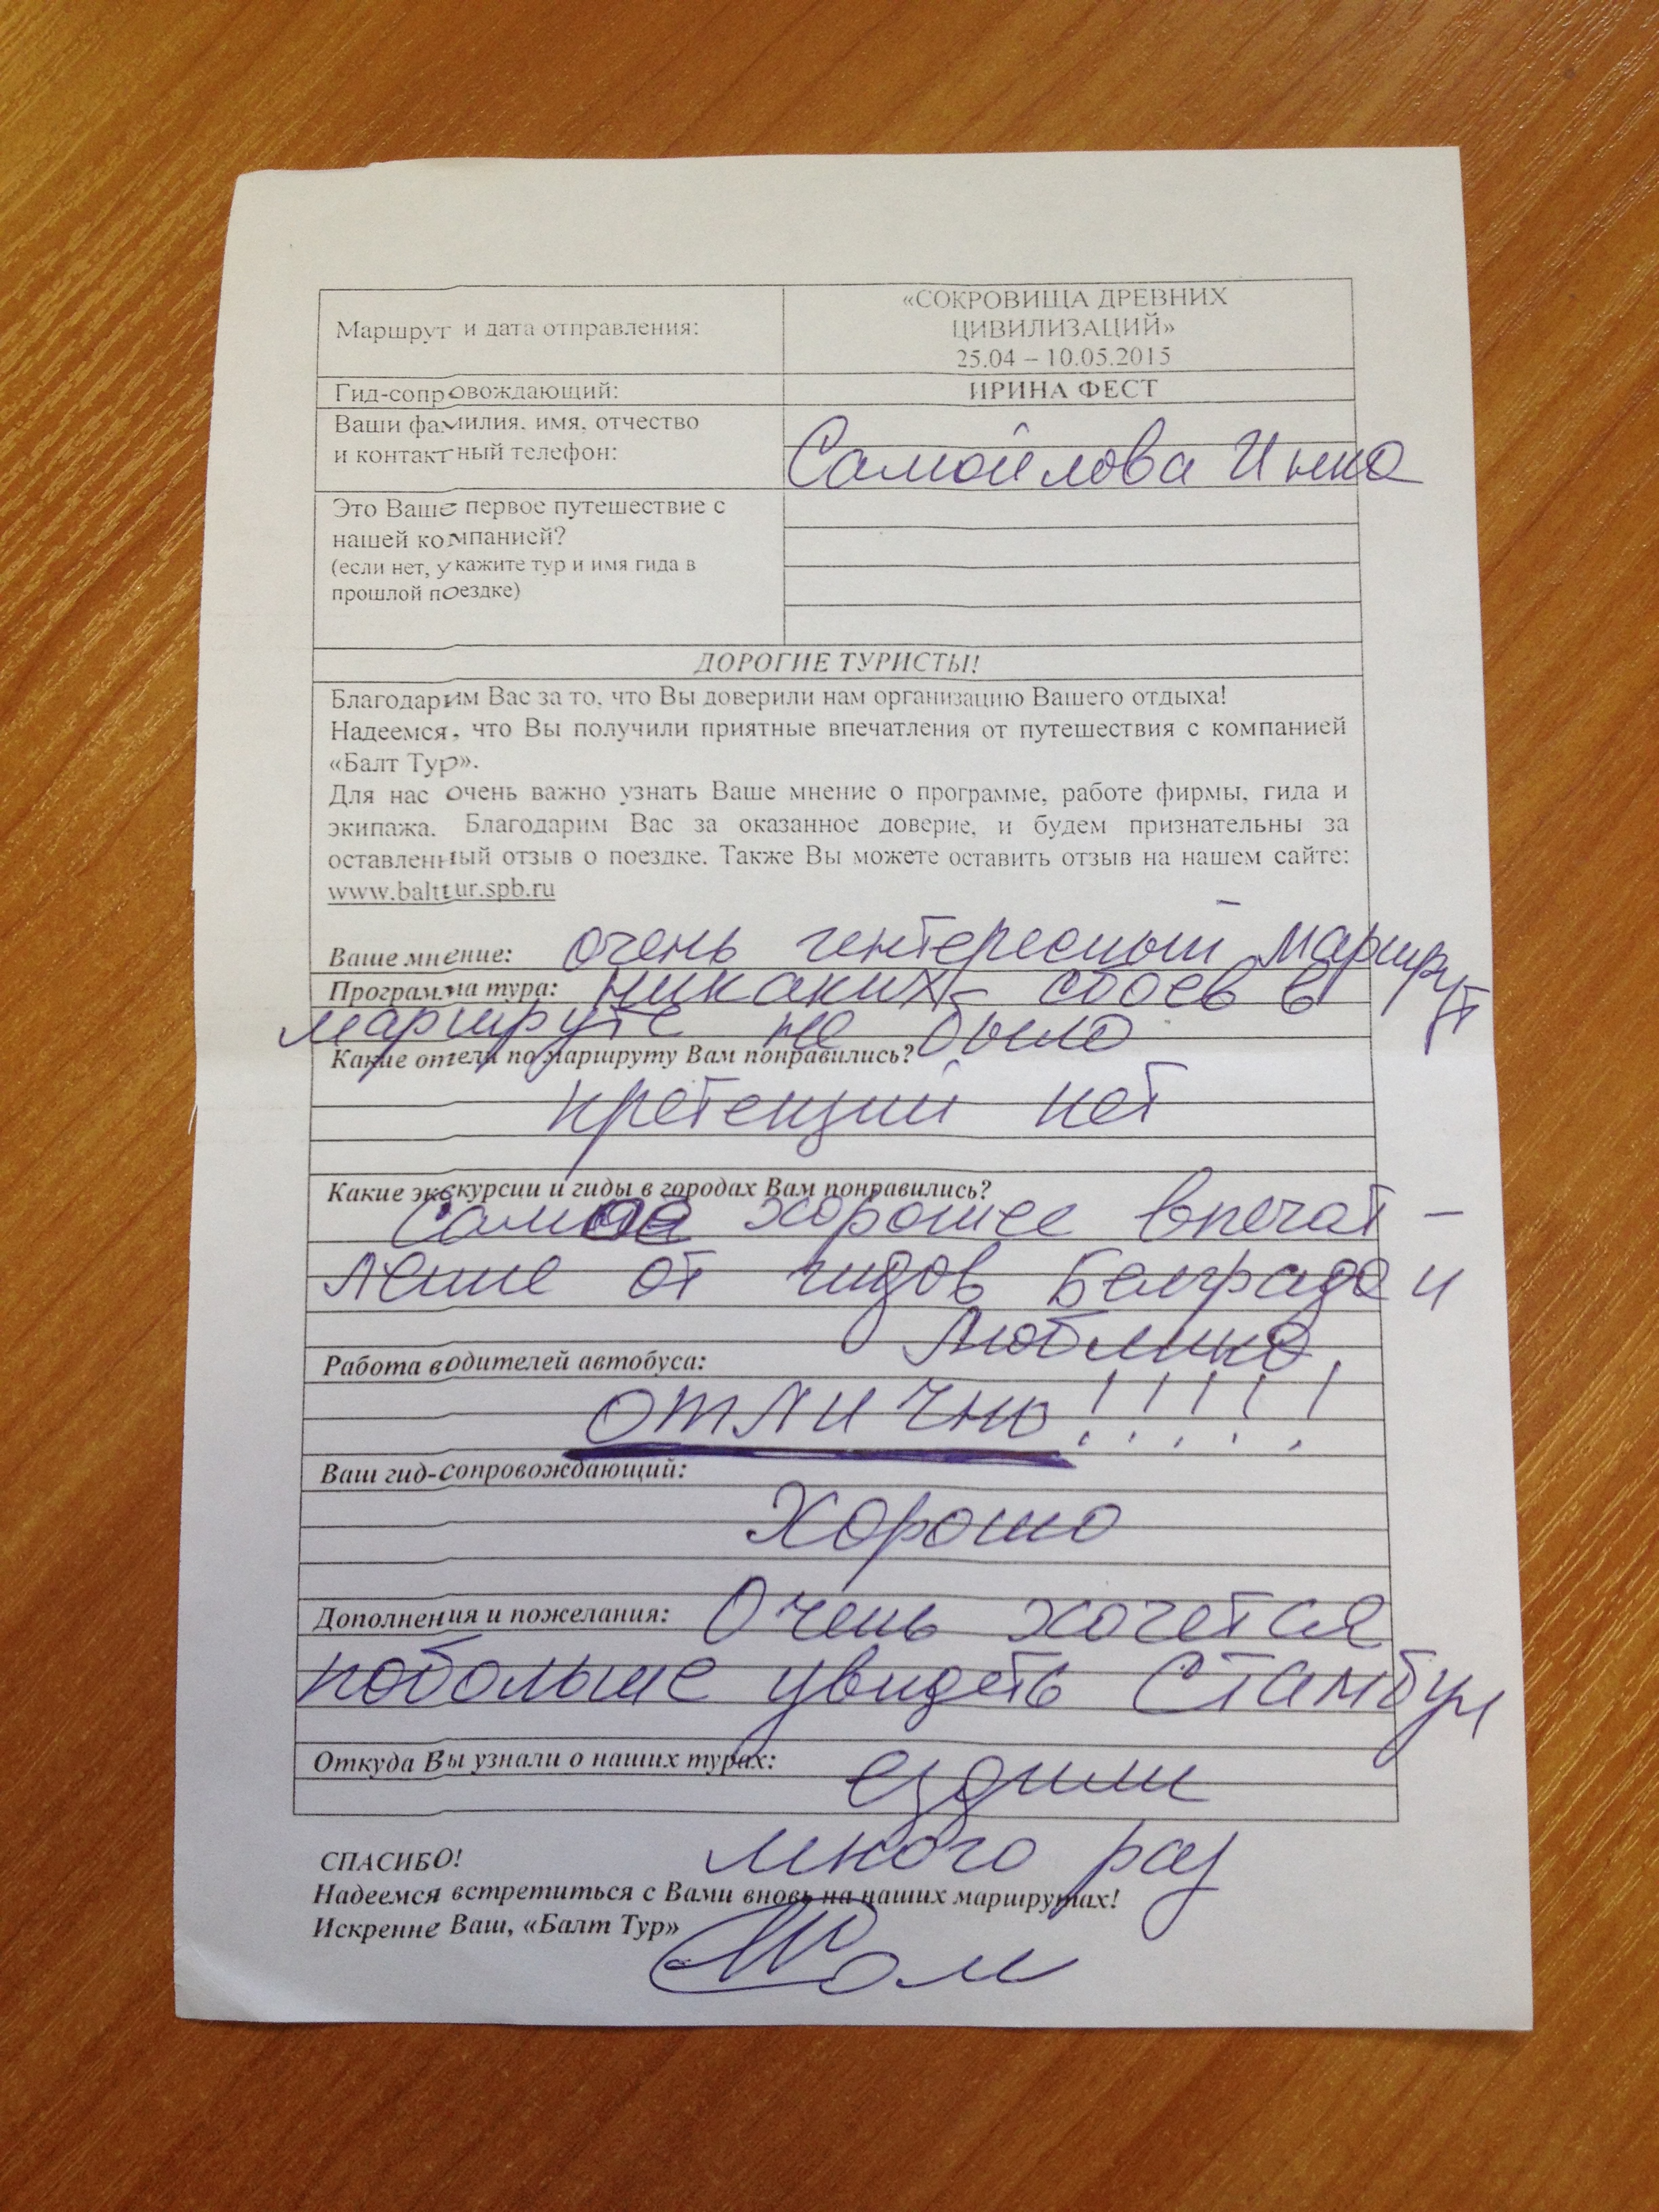 Маршрут и дата отправления:
«СОКРОВИЩА ДРЕВНИХ
ЦИВИЛИЗАЦИЙ»
25.04 – 10.05.2015
Гид-сопровождающий:
ИРИНА ФЕСТ
Ваши фамилия, имя, отчество
и контактный телефон:
Самойлова Инна
Это Ваше первое путешествие с
нашей компанией?
(если нет, укажите тур и имя гида в
прошлой поездке)
ДОРОГИЕ ТУРИСТЫ!
Благодарим Вас за то, что Вы доверили нам организацию Вашего отдыха!
Надеемся, что Вы получили приятные впечатления от путешествия с компанией
«Балт Тур».
Для нас очень важно узнать Ваше мнение о программе, работе фирмы, гида и
экипажа. Благодарим Вас за оказанное доверие, и будем признательны за
оставленный отзыв о поездке. Также Вы можете оставить отзыв на нашем сайте:
www.balttur.spb.ru
Ваше мнение: очень интересный маршрут
Программа тура: никаких сбоев в
маршруте не было
Какие отели по маршруту Вам понравились?
претензий нет
Какие экскурсии и гиды в городах Вам понравились?
Самое хорошее впечат-
ление от гидов Белграда и
Люблино.
Работа водителей автобуса:
отлично!!!!!
Ваш гид-сопровождающий:
Хорошо
Дополнения и пожелания: Очень хочется
побольше увидеть Стамбул
Откуда Вы узнали о наших турах: ездили
много раз
СПАСИБО!
Надеемся встретиться с Вами вновь на наших маршрутах!
Искренне Ваш, «Балт Тур»